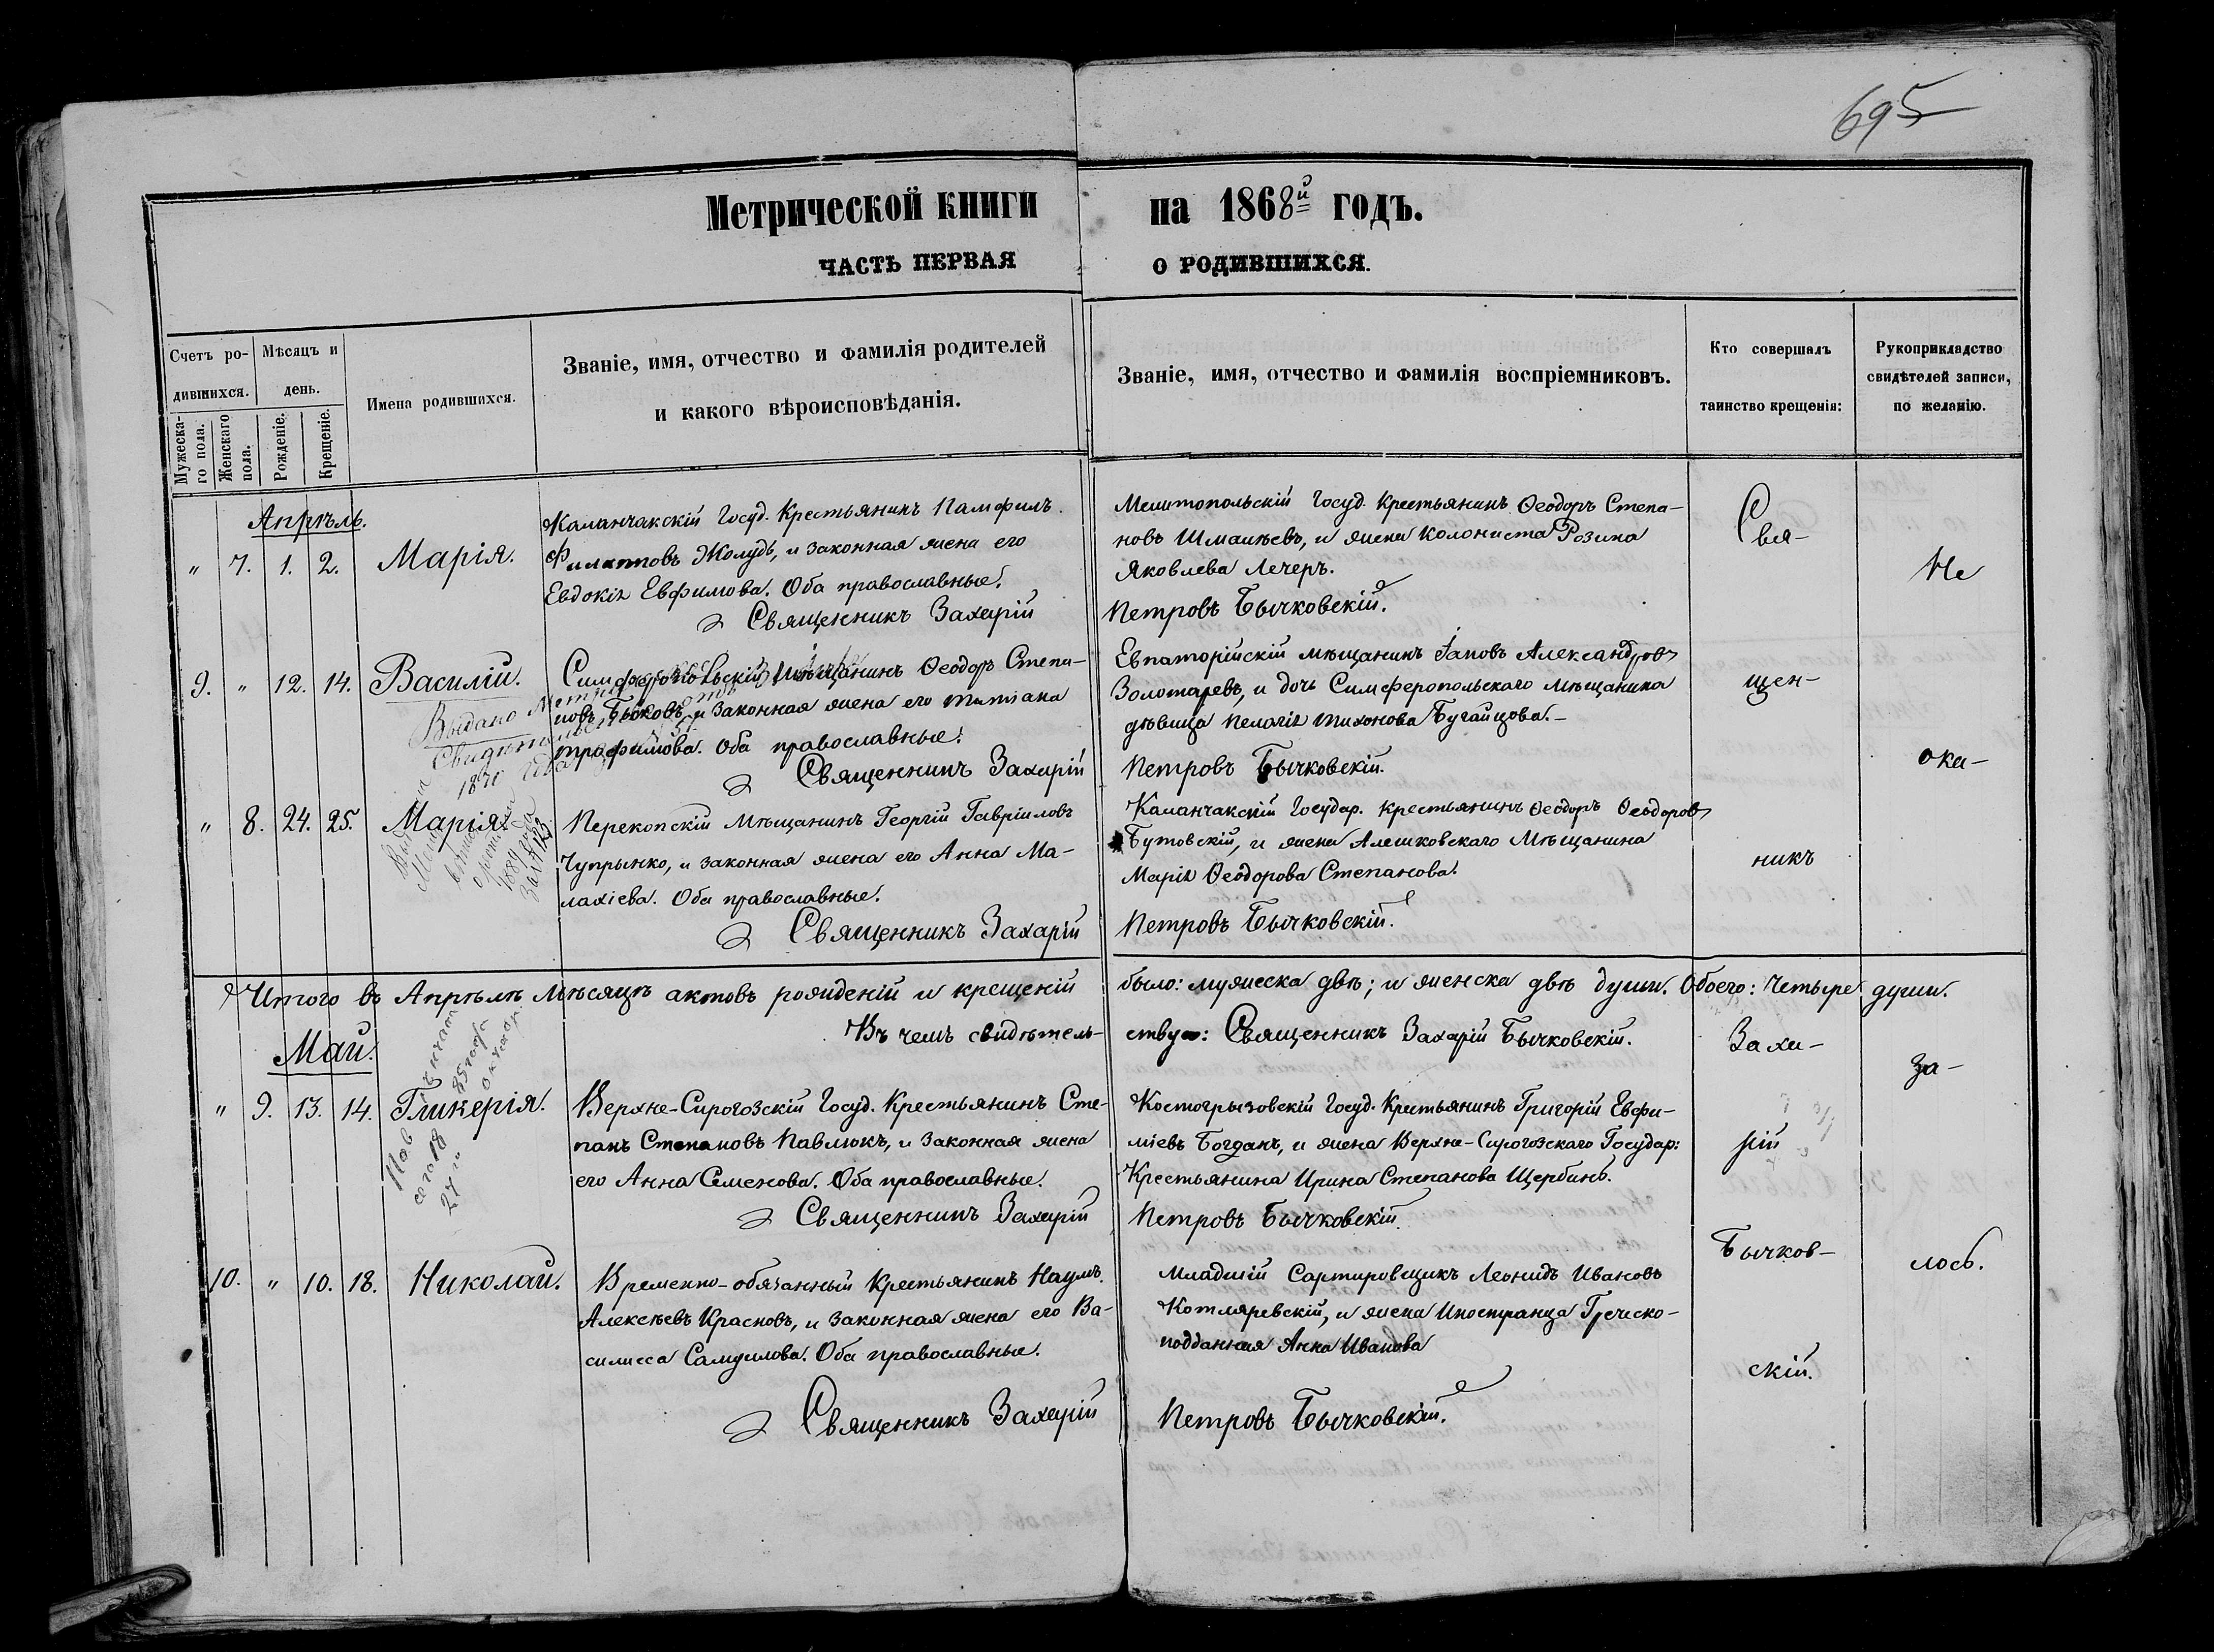 695
Метрической книги на 1868й годъ.
ЧАСТЬ ПЕРВАЯ О РОДИВШИХСЯ.
Счетъ родившихся.
Мужескаго пола.
Женскаго пола.
Мѣсяцъ и день.
Рожденіе.
Крещеніе.
Имена родившихся.
Званіе, имя, отчество и фамилія родителей
и какого вѣроисповѣданія.
Званіе, имя, отчество и фамилія воспріемниковъ.
Кто совершалъ
таинство крещенія:
Рукоприкладство
свидѣтелей записи,
по желанію.
Апрѣль.
" 7. 1. 2. Марія.
Каланчакскій Госуд. Крестьянинъ Памфилъ
Филиповъ Жолудь, и законная жена его
Евдокія Евфимова. Оба православные.
Священникъ Захарій
Мелитопольскій Госуд. Крестьянинъ Ѳеодоръ Степа-
новъ Шмалѣевъ, и жена Колониста Розина
Яковлева Лечеръ.
Петровъ Бычковскій.
9. " 12. 14. Василій.
Симферопольскій Мѣщанинъ Ѳеодоръ Степа-
новъ Быковъ, и законная жена его Татіана
Трофимова. Оба православные.
Священникъ Захарій
Евпаторійскій мѣщанинъ Іаковъ Александровъ
Золотаревъ, и дочь Симферопольскаго Мѣщанина
дѣвица Пелагія Тихонова Бугайцова.
Петровъ Бычковскій.
Выдано
" 8. 24. 25. Марія.
1889 года
Перекопскій Мѣщанинъ Георгій Гавріиловъ
Чупрынко, и законная жена его Анна Ма-
лахіева. Оба православные.
Священникъ Захарій
Каланчакскій Государ. крестьянинъ Ѳеодоръ Ѳеодоровъ
Бутовскій, и жена Алешковскаго Мѣщанина
Марія Ѳеодорова Степанова.
Петровъ Бычковскій.
Итого въ Апрѣлѣ Мѣсяцѣ актовъ рожденій и крещеній было: мужеска двѣ; и женска двѣ души. Обоего: Четыре души.
Въ чемъ свидѣтель-ствую: Священникъ Захарій Бычковскій.
Май.
" 9. 13. 14. Гликерія.
Верхне-Сирогозскій Госуд. Крестьянинъ Сте-
панъ Степановъ Павлюкъ, и законная жена
его Анна Семенова. Оба православные.
Священникъ Захарій
Костогрызовскій Госуд. Крестьянинъ Григорій Евфи-
міевъ Богданъ, и жена Верхне-Сирогозскаго Государ:
Крестьянина Ирина Степанова Щербинь.
Петровъ Бычковскій.
10. " 10. 18. Николай.
Временно-обязанный Крестьянинъ Наумъ
Алексѣевъ Красновъ, и законная жена его Ва-
силисса Самуилова. Оба православные.
Священникъ Захарій
Младшій Сартировщикъ Леонидъ Ивановъ
Котляревскій, и жена Иностранца Греческо-
подданная Анна Иванова
Петровъ Бычковскій.
Свя-
щен-
никъ
Заха-
рій
Бычков-
скій.
Не
ока-
за-
лось.